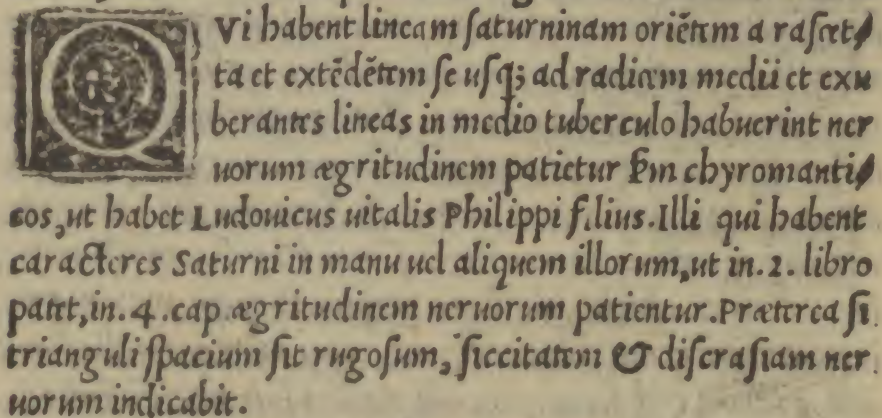 QVi habent lineam ſaturninam oriẽtem a raſcet/
ta et extẽdẽtem ſe uſq; ad radicem medii et exu
berantes lineas in medio tuberculo habuerint ner
uorum ægritudinem patietur ẜm chyromanti/
cos, ut habet Ludouicus uitalis Philippi filius. Illi qui habent
caracteres Saturni in manu uel aliquem illorum, ut in. 2. libro
patet, in. 4. cap ægritudinem neruorum patientur. Præterea ſi
trianguli ſpacium ſit rugoſum, ſiccitatem & diſcraſiam ner
uorum indicabit.